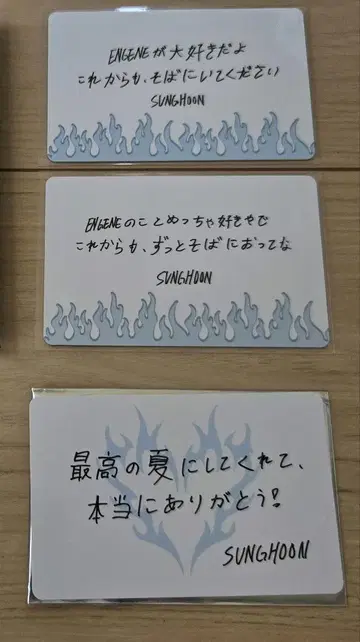 ENGENEが大好きだよ
これからも、そばにいてください
SUNGHOON
ENGENEのことめっちゃ好きやで
これからも、ずっとそばにおってな
SUNGHOON
最高の夏にしてくれて、
本当にありがとう!
SUNGHOON